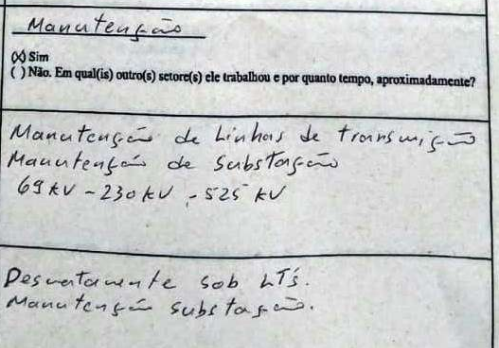 Manutenção
(X) Sim
( ) Não. Em qual(is) outro(s) setore(s) ele trabalhou e por quanto tempo, aproximadamente?
Manutenção de Linhas de transmição
Manutenção de Substação
69 KV - 230 KV - 525 KV
Desmatamente sob LTs.
Manutenção substação.